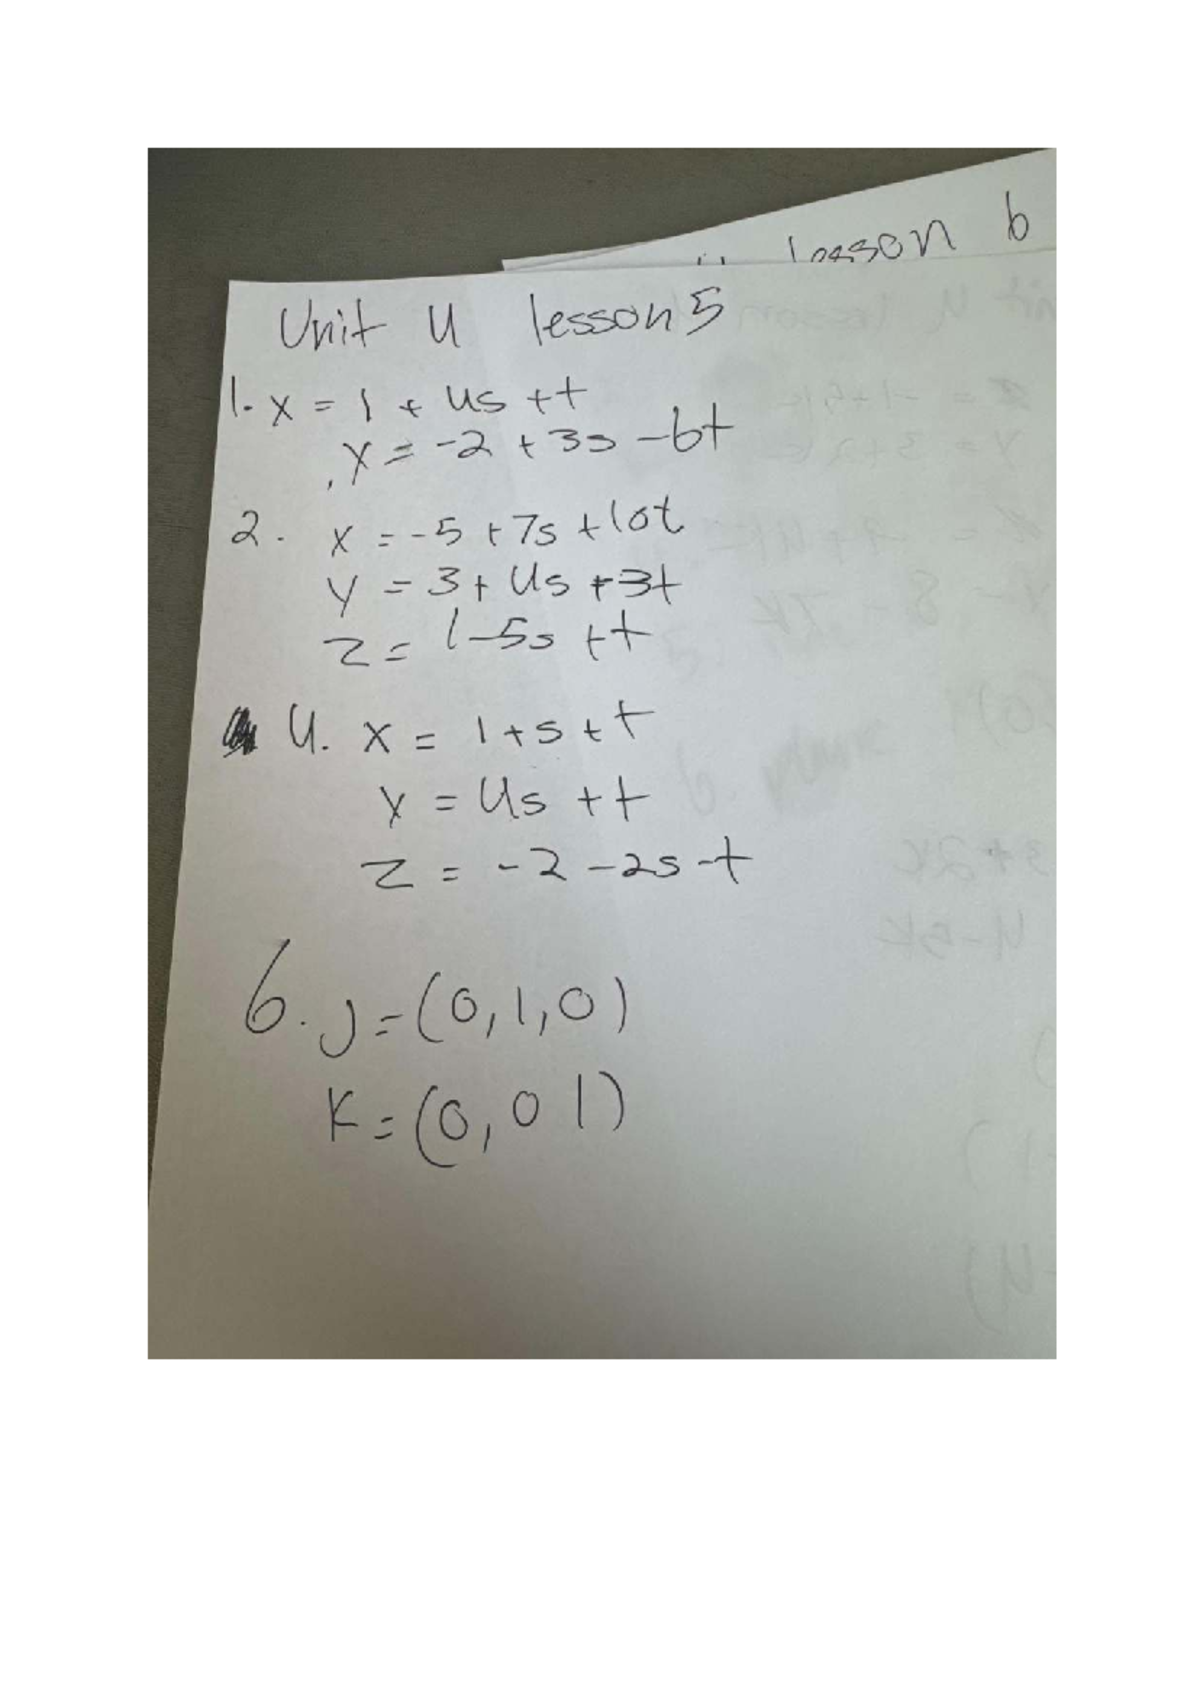 lesson 6
Unit 4 lesson 5
1. x = 1 + 4s + t
y = -2 + 3s - 6t
2. x = -5 + 7s + 10t
y = 3 + 4s + 3t
z = 1 - 5s + t
4. x = 1 + s + t
y = 4s + t
z = -2 - 2s - t
6. j = (0, 1, 0)
k = (0, 0 1)